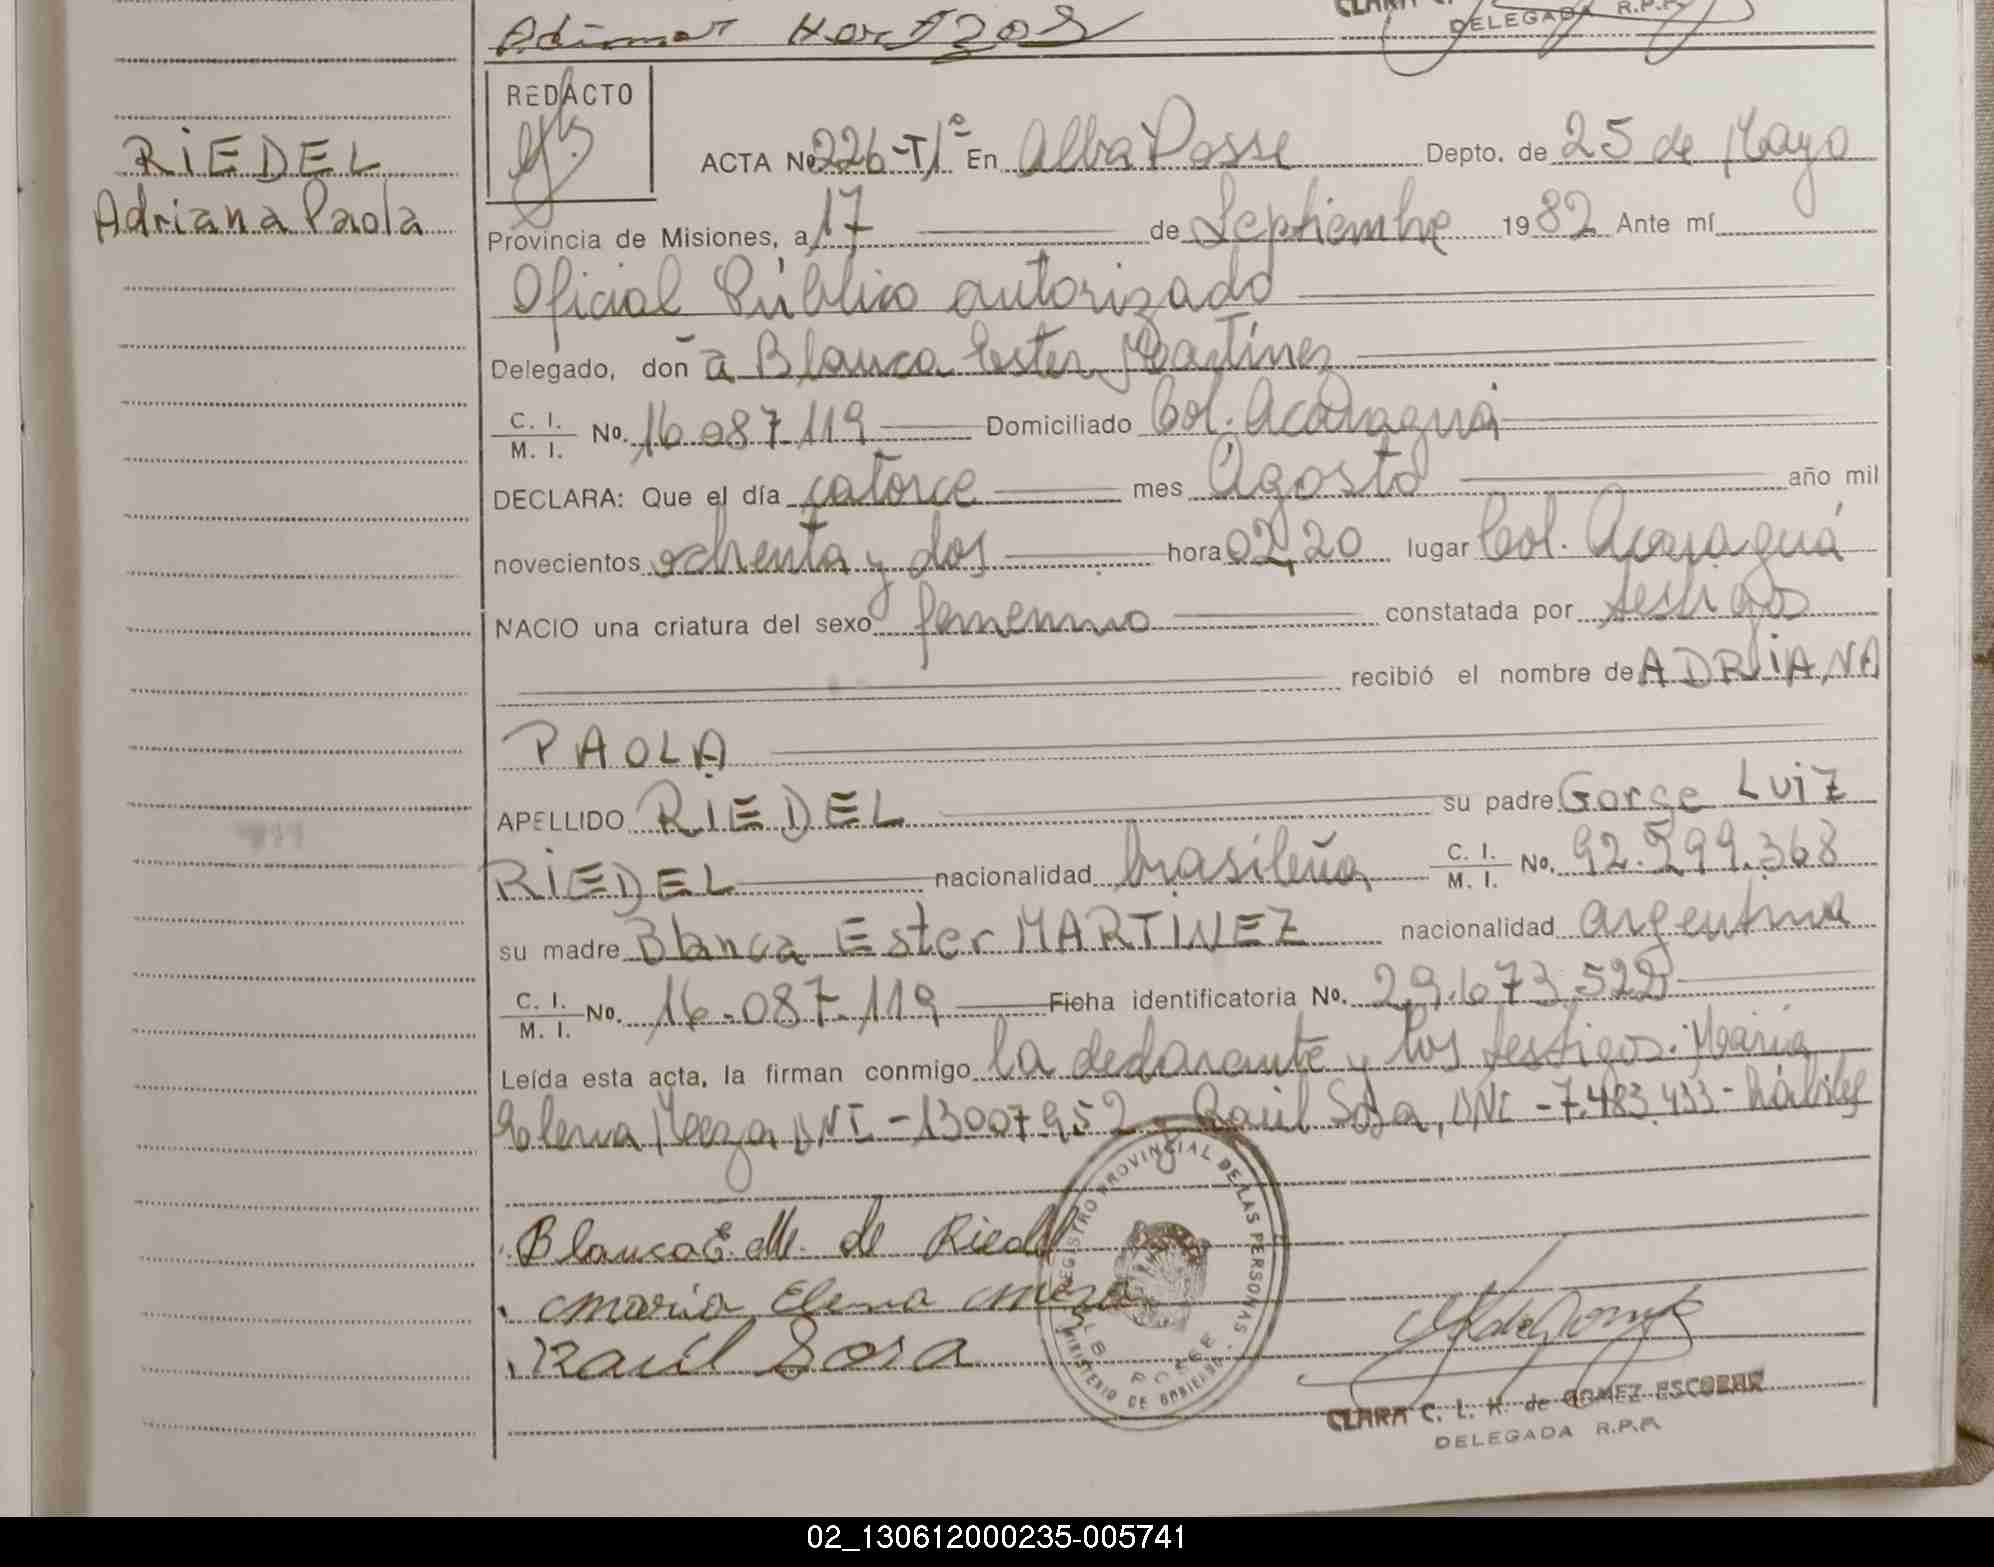 Adimar Hortzos
CLARA C.
DELEGADA R.P.P.
REDACTO
RIEDEL
Adriana Paola
ACTA Nº 226-T/1º En Alba Posse Depto. de 25 de Mayo
Provincia de Misiones, a 17 de Septiembre 1982 Ante mí
Oficial Público autorizado
Delegado, don a Blanca Ester Martínez
C. I. / M. I. No. 16.087.119 Domiciliado Col. Acaraguá
DECLARA: Que el día catorce mes Agosto año mil
novecientos ochenta y dos hora 02,20 lugar Col. Acaraguá
NACIO una criatura del sexo femenino constatada por testigos
recibió el nombre de ADRIANA
PAOLA
APELLIDO RIEDEL su padre Gorge LUIZ
RIEDEL nacionalidad brasileña C. I. / M. I. No. 92.599.368
su madre Blanca Ester MARTINEZ nacionalidad argentina
C. I. / M. I. No. 16.087.119 Ficha identificatoria No. 29.673.522
Leída esta acta, la firman conmigo la declarante y los testigos: María
Elena Meza DNI - 13007.952 - Raúl Sosa, DNI - 7.483.433 - hábiles
Blanca E. M. de Riedel
María Elena Meza
Raúl Sosa
REGISTRO PROVINCIAL DE LAS PERSONAS
MINISTERIO DE GOBIERNO
CLARA C. L. H. de GOMEZ ESCOBAR
DELEGADA R.P.P.
02_130612000235-005741